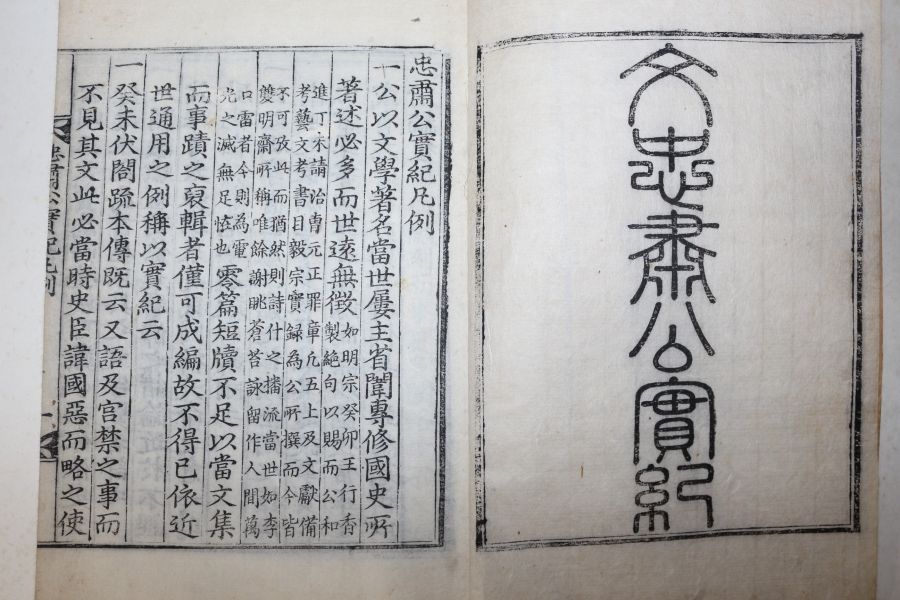 文忠肅公實紀
忠肅公實紀凡例
一公以文學著名當世屢主省闈專修國史所
著述必多而世遠無徵如明宗癸卯王行香
製絶句以賜而公和
進丁未請治曹元正罪章凢五上及文獻備
考藝文考書目毅宗實録為公所撰而今皆
不可攷此而猶然則詩什之播流當世如李
雙明齋所稱唯餘謝眺蒼苔詠留作人間萬
口雷者今則為電
光之滅無足恠也零篇短牘不足以當文集
而事蹟之裒輯者僅可成編故不得已依近
世通用之例稱以實紀云
一癸未伏閤疏本傳既云又語及宮禁之事而
不見其文此必當時史臣諱國惡而略之使
忠肅公實紀凡例